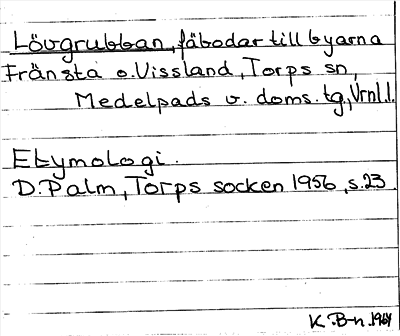 Lövgrubban, fäbodar till byarna
Fränsta o. Vissland, Torps sn,
Medelpads v. doms. tg., Vrnl.l.
Etymologi.
D. Palm, Torps socken 1956, s. 23
K. B-n. 1964